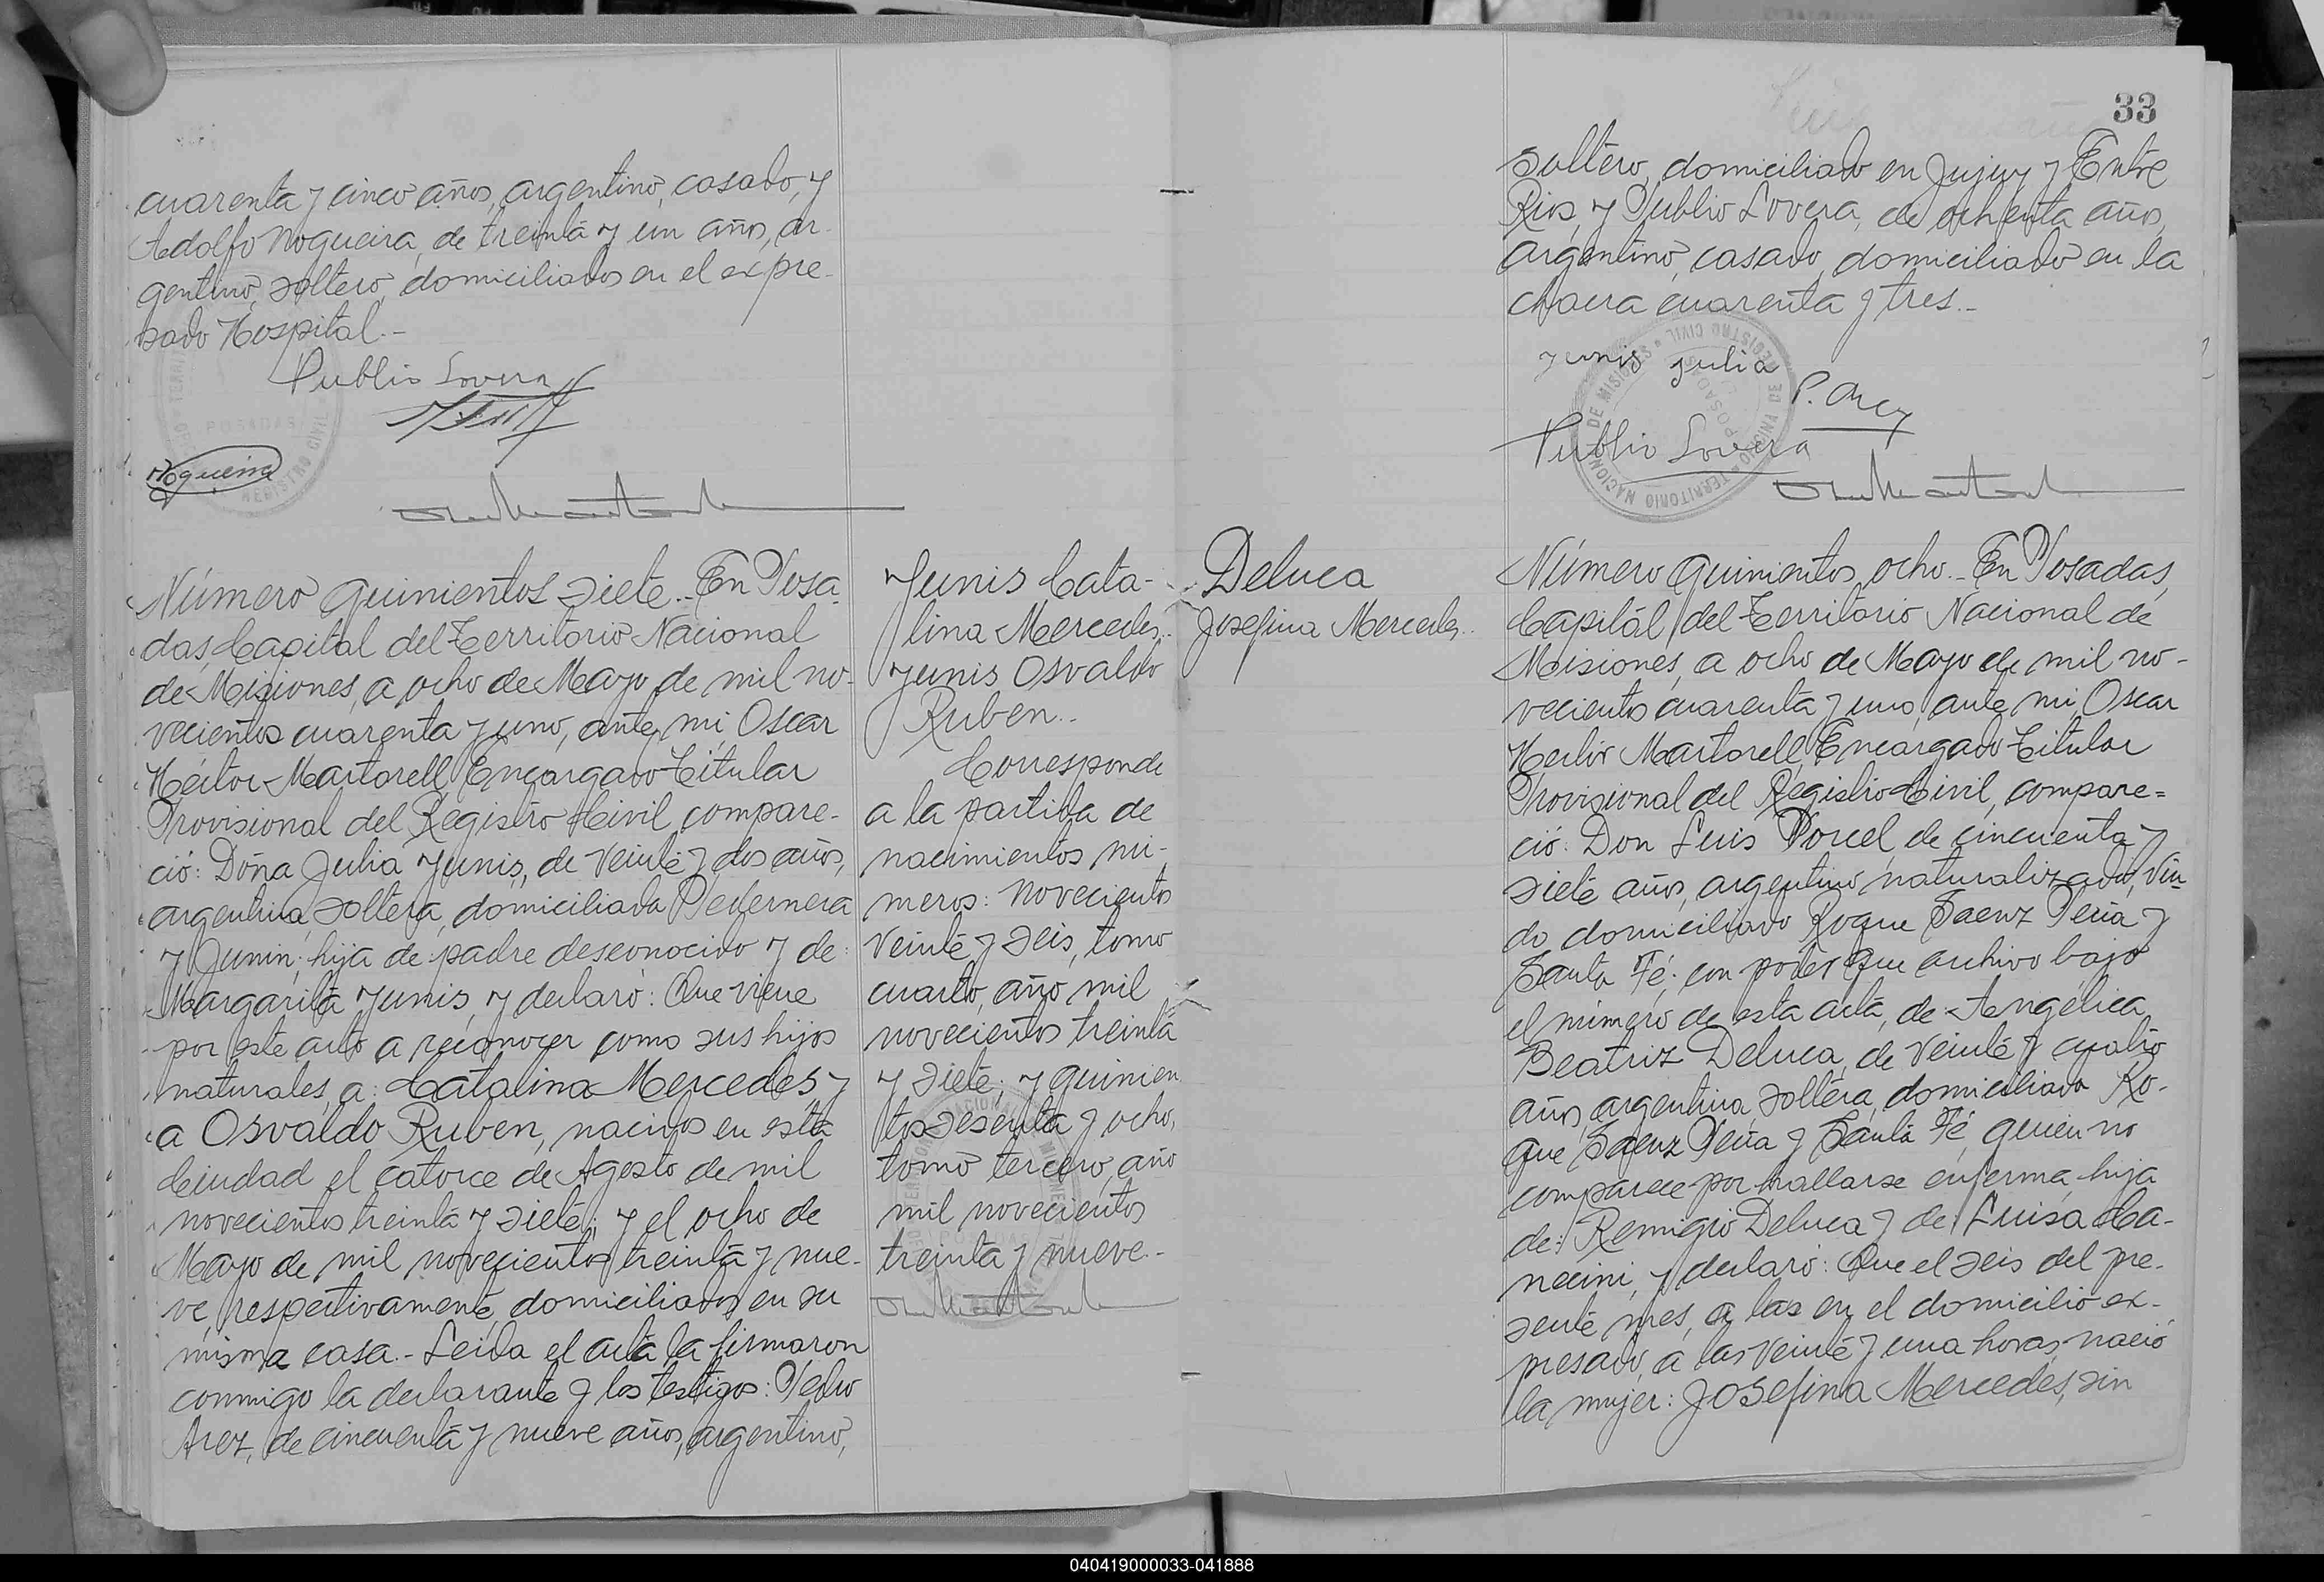 cuarenta y cinco años, argentino, casado, y
Adolfo Nogueira, de treinta y un años, ar-
gentino, soltero, domiciliados en el expre-
sado Hospital.-
Publio Lovera
Nogueira
Número quinientos siete.- En Posa-
das, Capital del Territorio Nacional
de Misiones, a ocho de Mayo de mil no-
vecientos cuarenta y uno, ante mi, Oscar
Héctor Martorell, Encargado Titular
Provisional del Registro Civil, compare-
ció: Doña Julia Yunis, de veinte y dos años,
argentina, soltera, domiciliada Pedernera
y Junin; hija de padre desconocido y de
Margarita Yunis, y declaró: Que viene
por este acto a reconocer como sus hijos
naturales, a: Catalina Mercedes, y
a Osvaldo Ruben, nacidos en esta
Ciudad el catorce de Agosto de mil
novecientos treinta y siete; y el ocho de
Mayo de mil novecientos treinta y nue-
ve, respectivamente, domiciliados en su
misma casa.- Leida el acta la firmaron
conmigo la declarante y los testigos: Pedro
Arez, de cincuenta y nueve años, argentino,
Yunis Cata-
lina Mercedes..
Yunis Osvaldo
Ruben..
Corresponde
a la partida de
nacimientos nú-
meros: novecientos
veinte y seis, tomo
cuarto, año mil
novecientos treinta
y siete; y quinien
tos sesenta y ocho,
tomo tercero, año
mil novecientos
treinta y nueve.-
Deluca
Josefina Mercedes..
33
soltero, domiciliado en Jujuy y Entre
Rios, y Publio Lovera, de ochenta años,
argentino, casado, domiciliado en la
chacra cuarenta y tres.-
Yunis Julia
P. Arez
Publio Lovera
REGISTRO CIVIL
TERRITORIO NACIONAL DE MISIONES
POSADAS
Número quinientos ocho.- En Posadas,
Capital del Territorio Nacional de
Misiones, a ocho de Mayo de mil no-
vecientos cuarenta y uno, ante mi, Oscar
Hector Martorell, Encargado Titular
Provisional del Registro Civil, compare=
ció: Don Luis Porcel, de cincuenta y
siete años, argentino naturalizado, viu-
do, domiciliado Roque Saenz Peña y
Santa Fé; con poder que archivo bajo
el número de esta acta, de Angélica
Beatriz Deluca, de veinte y cuatro
años, argentina, soltera, domiciliada Ro-
que Saenz Peña y Santa Fé, quien no
comparece por hallarse enferma, hija
de: Remigio Deluca y de Luisa Ca-
necini, y declaró: Que el seis del pre-
sente mes, a las en el domicilio ex-
presado, a las veinte y una horas, nació
la mujer: Josefina Mercedes, sin
040419000033-041888